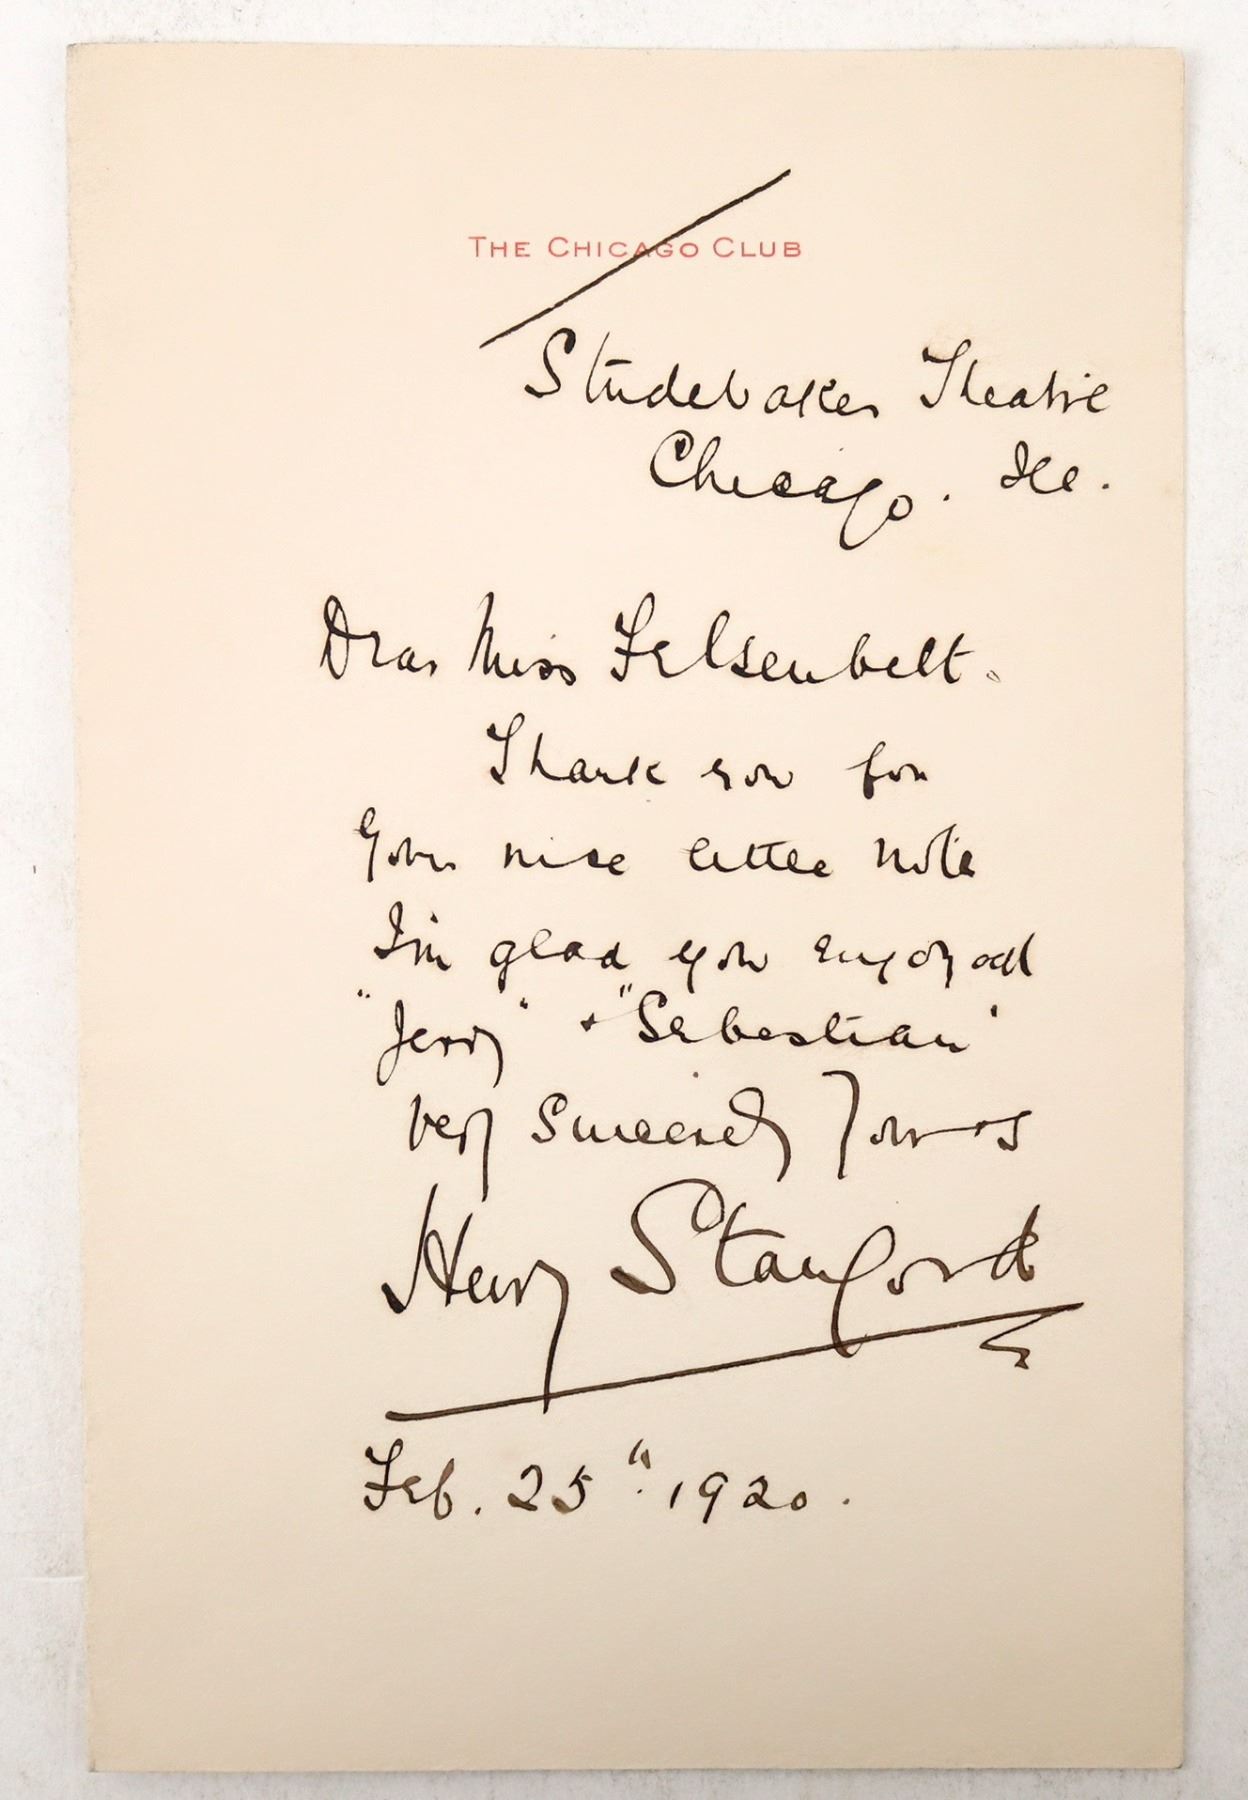 THE CHICAGO CLUB
Studebaker Theatre
Chicago. Ill.
Dear Miss Felsenbelt.
Thank you for
your nice little note
I'm glad you enjoyed
"Jerry" & "Sebastian"
very Sincerely Yours
Henry Stanford
Feb. 25th 1920.